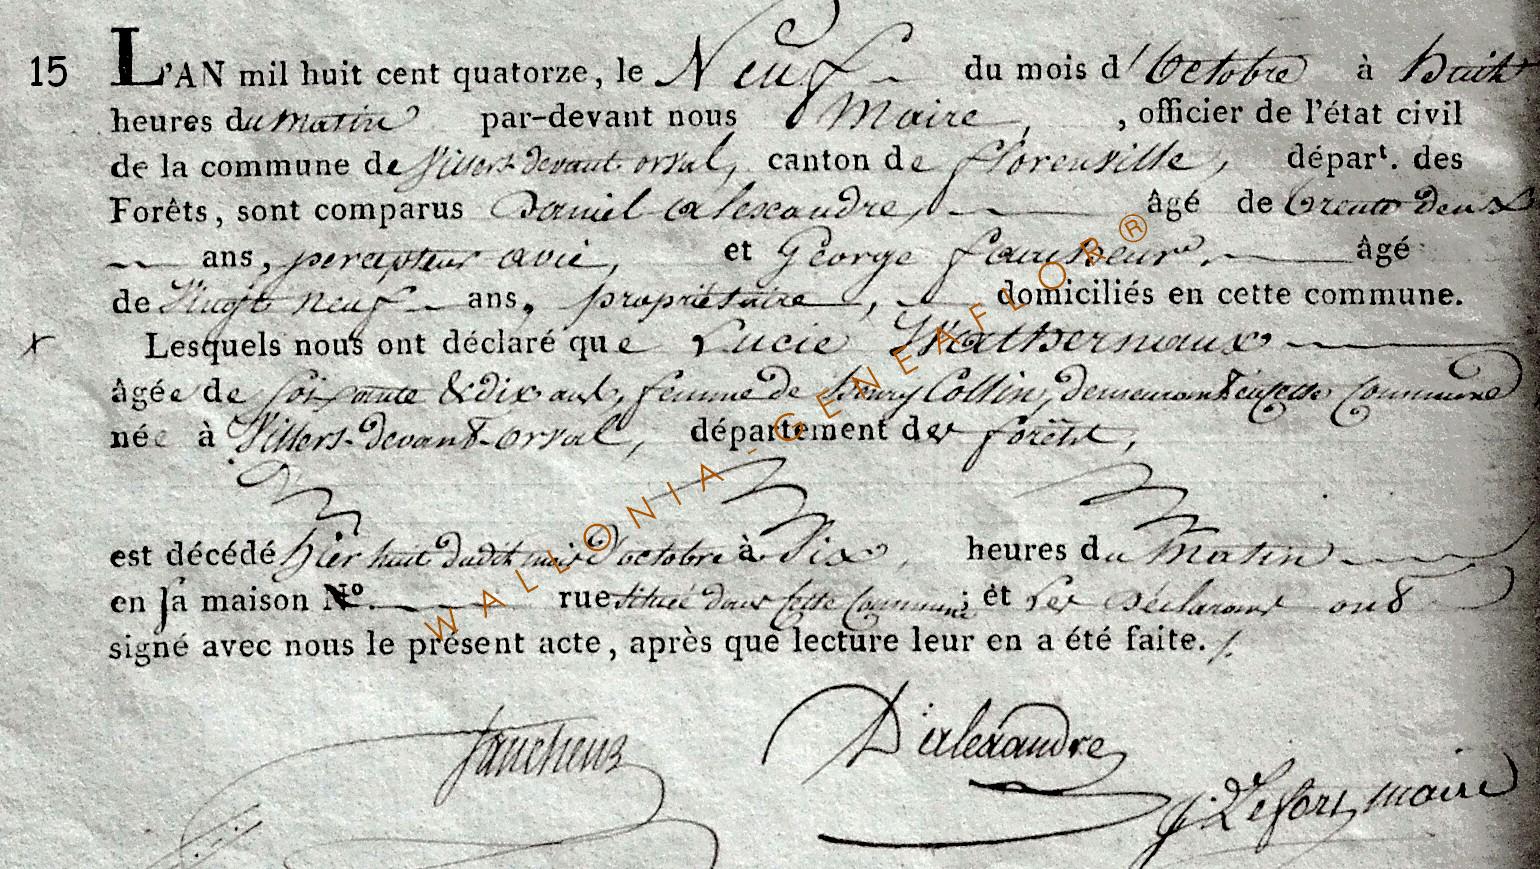 15 L'AN mil huit cent quatorze, le Neuf du mois d'Octobre à huit
heures du Matin par-devant nous Maire, , officier de l'état civil
de la commune de Villers devant orval, canton de florenville, départ. des
Forêts, sont comparus Daniel alexandre, âgé de trente deux
ans, percepteur et George faucheur, âgé
de Vingt neuf ans, propriétaire, domiciliés en cette commune.
x Lesquels nous ont déclaré que Lucie Wathernaux
âgée de soixante & dix ans, femme de henry Collin, demeurant en cette Commune
née à Villers-devant-orval, département des forêts,
est décédé hier huit dudit mois d'octobre à Dix heures du Matin
en sa maison N.º rue située dans cette Commune; et Les Déclarans ont
signé avec nous le présent acte, après que lecture leur en a été faite./.
faucheur D alexandre
J. Lefort, maire
WALLONIA-GENEAFLOR®